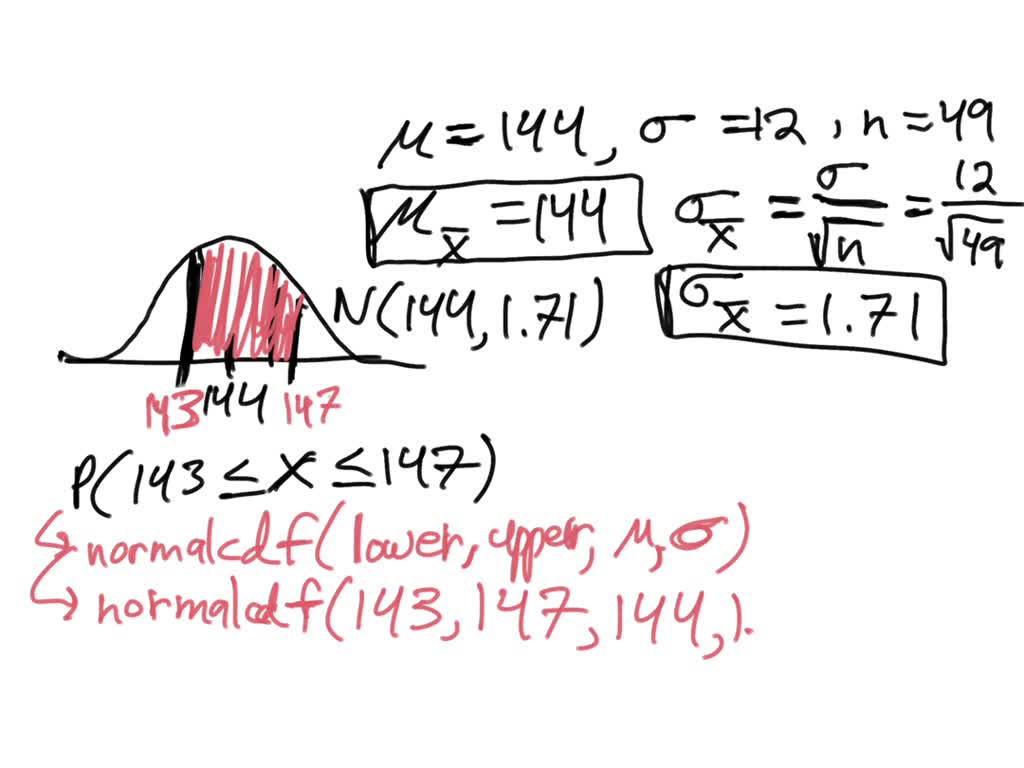 μ = 144, σ = 12, n = 49
μx̄ = 144
σx̄ = σ/√n = 12/√49
N(144, 1.71)
σx̄ = 1.71
143 144 147
P(143 ≤ X ≤ 147)
↳ normalcdf(lower, upper, μ, σ)
↳ normalcdf(143, 147, 144, 1.